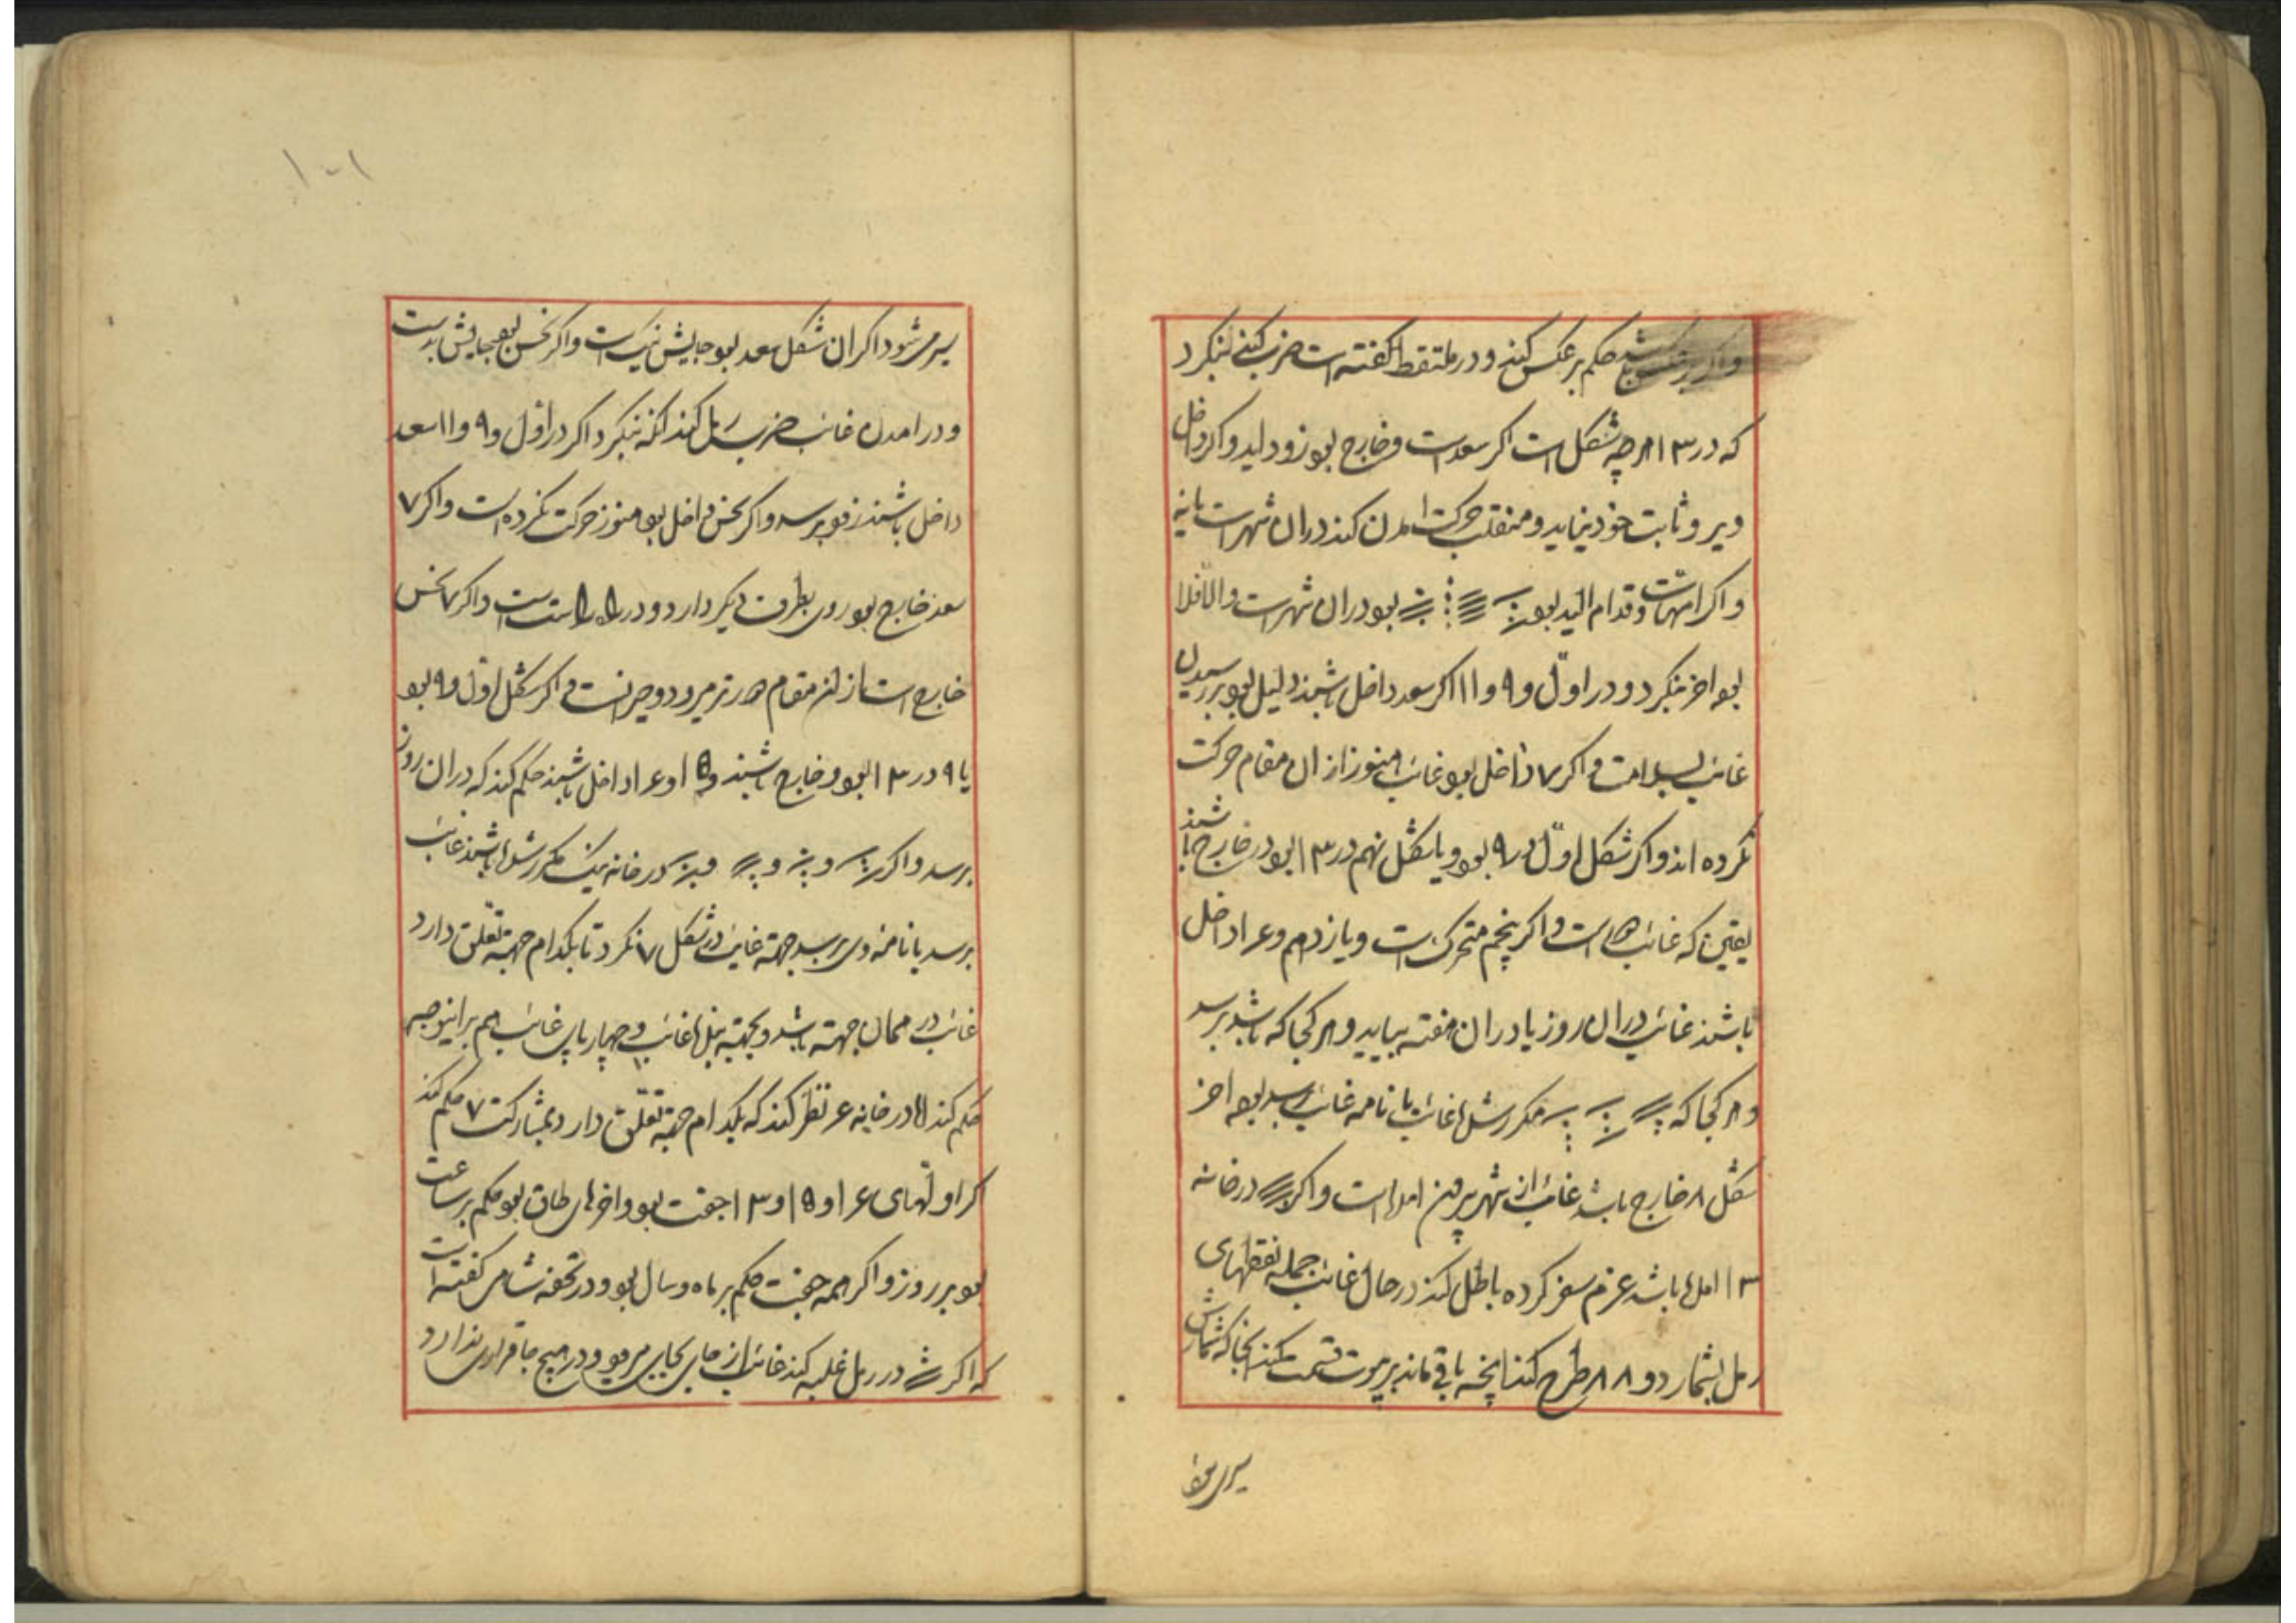 واکر برعکس باشد حکم برعکس کنند و در ملتقط کفته است ضرب کنی بنکرد
که در ۱۳ هرچه شکل است اکر سعد است و خارج بود زود اید و اکر داخل
دیر و ثابت خود نیاید و منقلب حرکت امدن کند در ان شهر است یا نه
و اکر امهات و قدام اید بود در ان شهر است و الا فلا
بود اخر بنکرد و در اول و ۹ و ۱۱ اکر سعد داخل باشند دلیل بود بر رسیدن
غائب بسلامت و اکر ۷ داخل بود غائب هنوز از ان مقام حرکت
نکرده اند و اکر شکل اول در ۹ بود و یا شکل نهم در ۱۳ بود خارج باشند
یقین که غائب است و اکر پنجم متحرک است و یازدهم و ۶ داخل
باشند غائب در ان روز یا در ان هفته بیاید و هر کجا که باشد برسد
و هر کجا که مکرر شد غائب یا نامه غائب برسد بود اخر
شکل ۸ خارج باشد غائب از شهر بیرون امده است و اکر در خانه
۱۳ امده باشد عزم سفر کرده باطل کند در حال غائب جمله نقطهای
رمل بشمارد و ۸۸ طرح کند انچه باقی ماند بر بیوت قسمت کند انجا که شمارش
۱۰۱
سر شود اکر ان شکل سعد بود جایش نیک است و اکر نحس بود جایش بد است
و در امدن غائب ضرب رمل کند انکه بنکرد اکر در اول و ۹ و ۱۱ سعد
داخل باشند زود برسد و اکر نحس داخل بود هنوز حرکت نکرده است و اکر ۷
سعد خارج بود روی بطرف دیکر دارد و در راه است و اکر ۷ نحس
خارج است از ان مقام دورتر میرود و حیرانست و اکر شکل اول و ۹ بود
یا ۹ در ۱۳ بود و خارج باشند و ۵ و ۶ داخل باشند حکم کند که در ان روز
برسد و اکر و و و در خانه نیک مکرر شده باشند غائب
برسد یا نامه وی برسد جهة غائب در شکل ۷ نکرد تا بکدام جهة تعلق دارد
غائب در همان جهة باشد و بجهة بندهٔ غائب و چهارپای غائب هم بر اینوجه
حکم کند اما در خانه ۶ نظر کند که بکدام جهة تعلق دارد بمشارکت ۷ حکم کند
کر اولهای ۱۴ و ۱۵ و ۱۳ جفت بود و اخرهای طاق بود حکم بر ساعت
بود بر روز و اکر همه جفت حکم بر ماه و سال بود و در تحفه شاهی کفته است
که اکر در رمل غلبه کند غائب از جای بجای میرود و در هیچ جا قراری ندارد